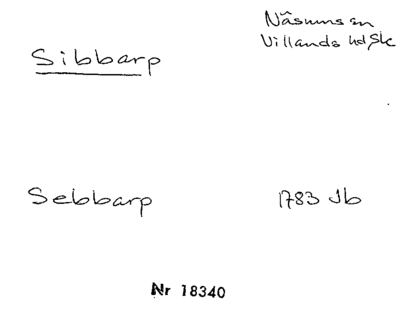 Sibbarp
Näsums sn
Villands hd, Sk
Sebbarp
1783 Jb
Nr 18340